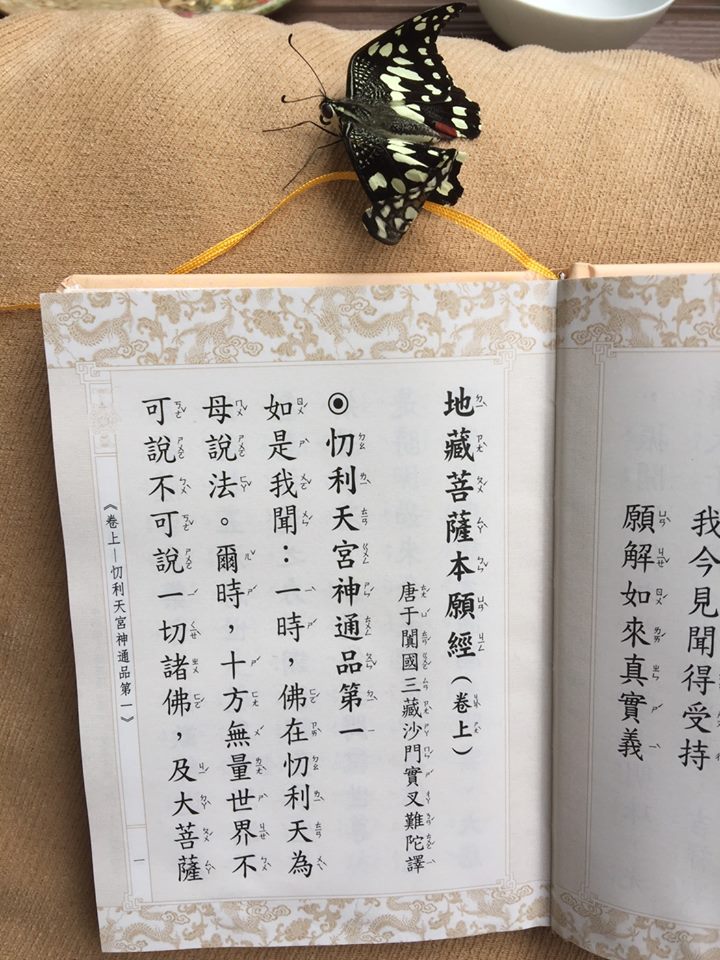 我今見聞得受持
願解如來真實義
地藏菩薩本願經（卷上）
唐于闐國三藏沙門實叉難陀譯
◉忉利天宮神通品第一
如是我聞：一時，佛在忉利天為
母說法。爾時，十方無量世界不
可說不可說一切諸佛，及大菩薩
《卷上—忉利天宮神通品第一》
一